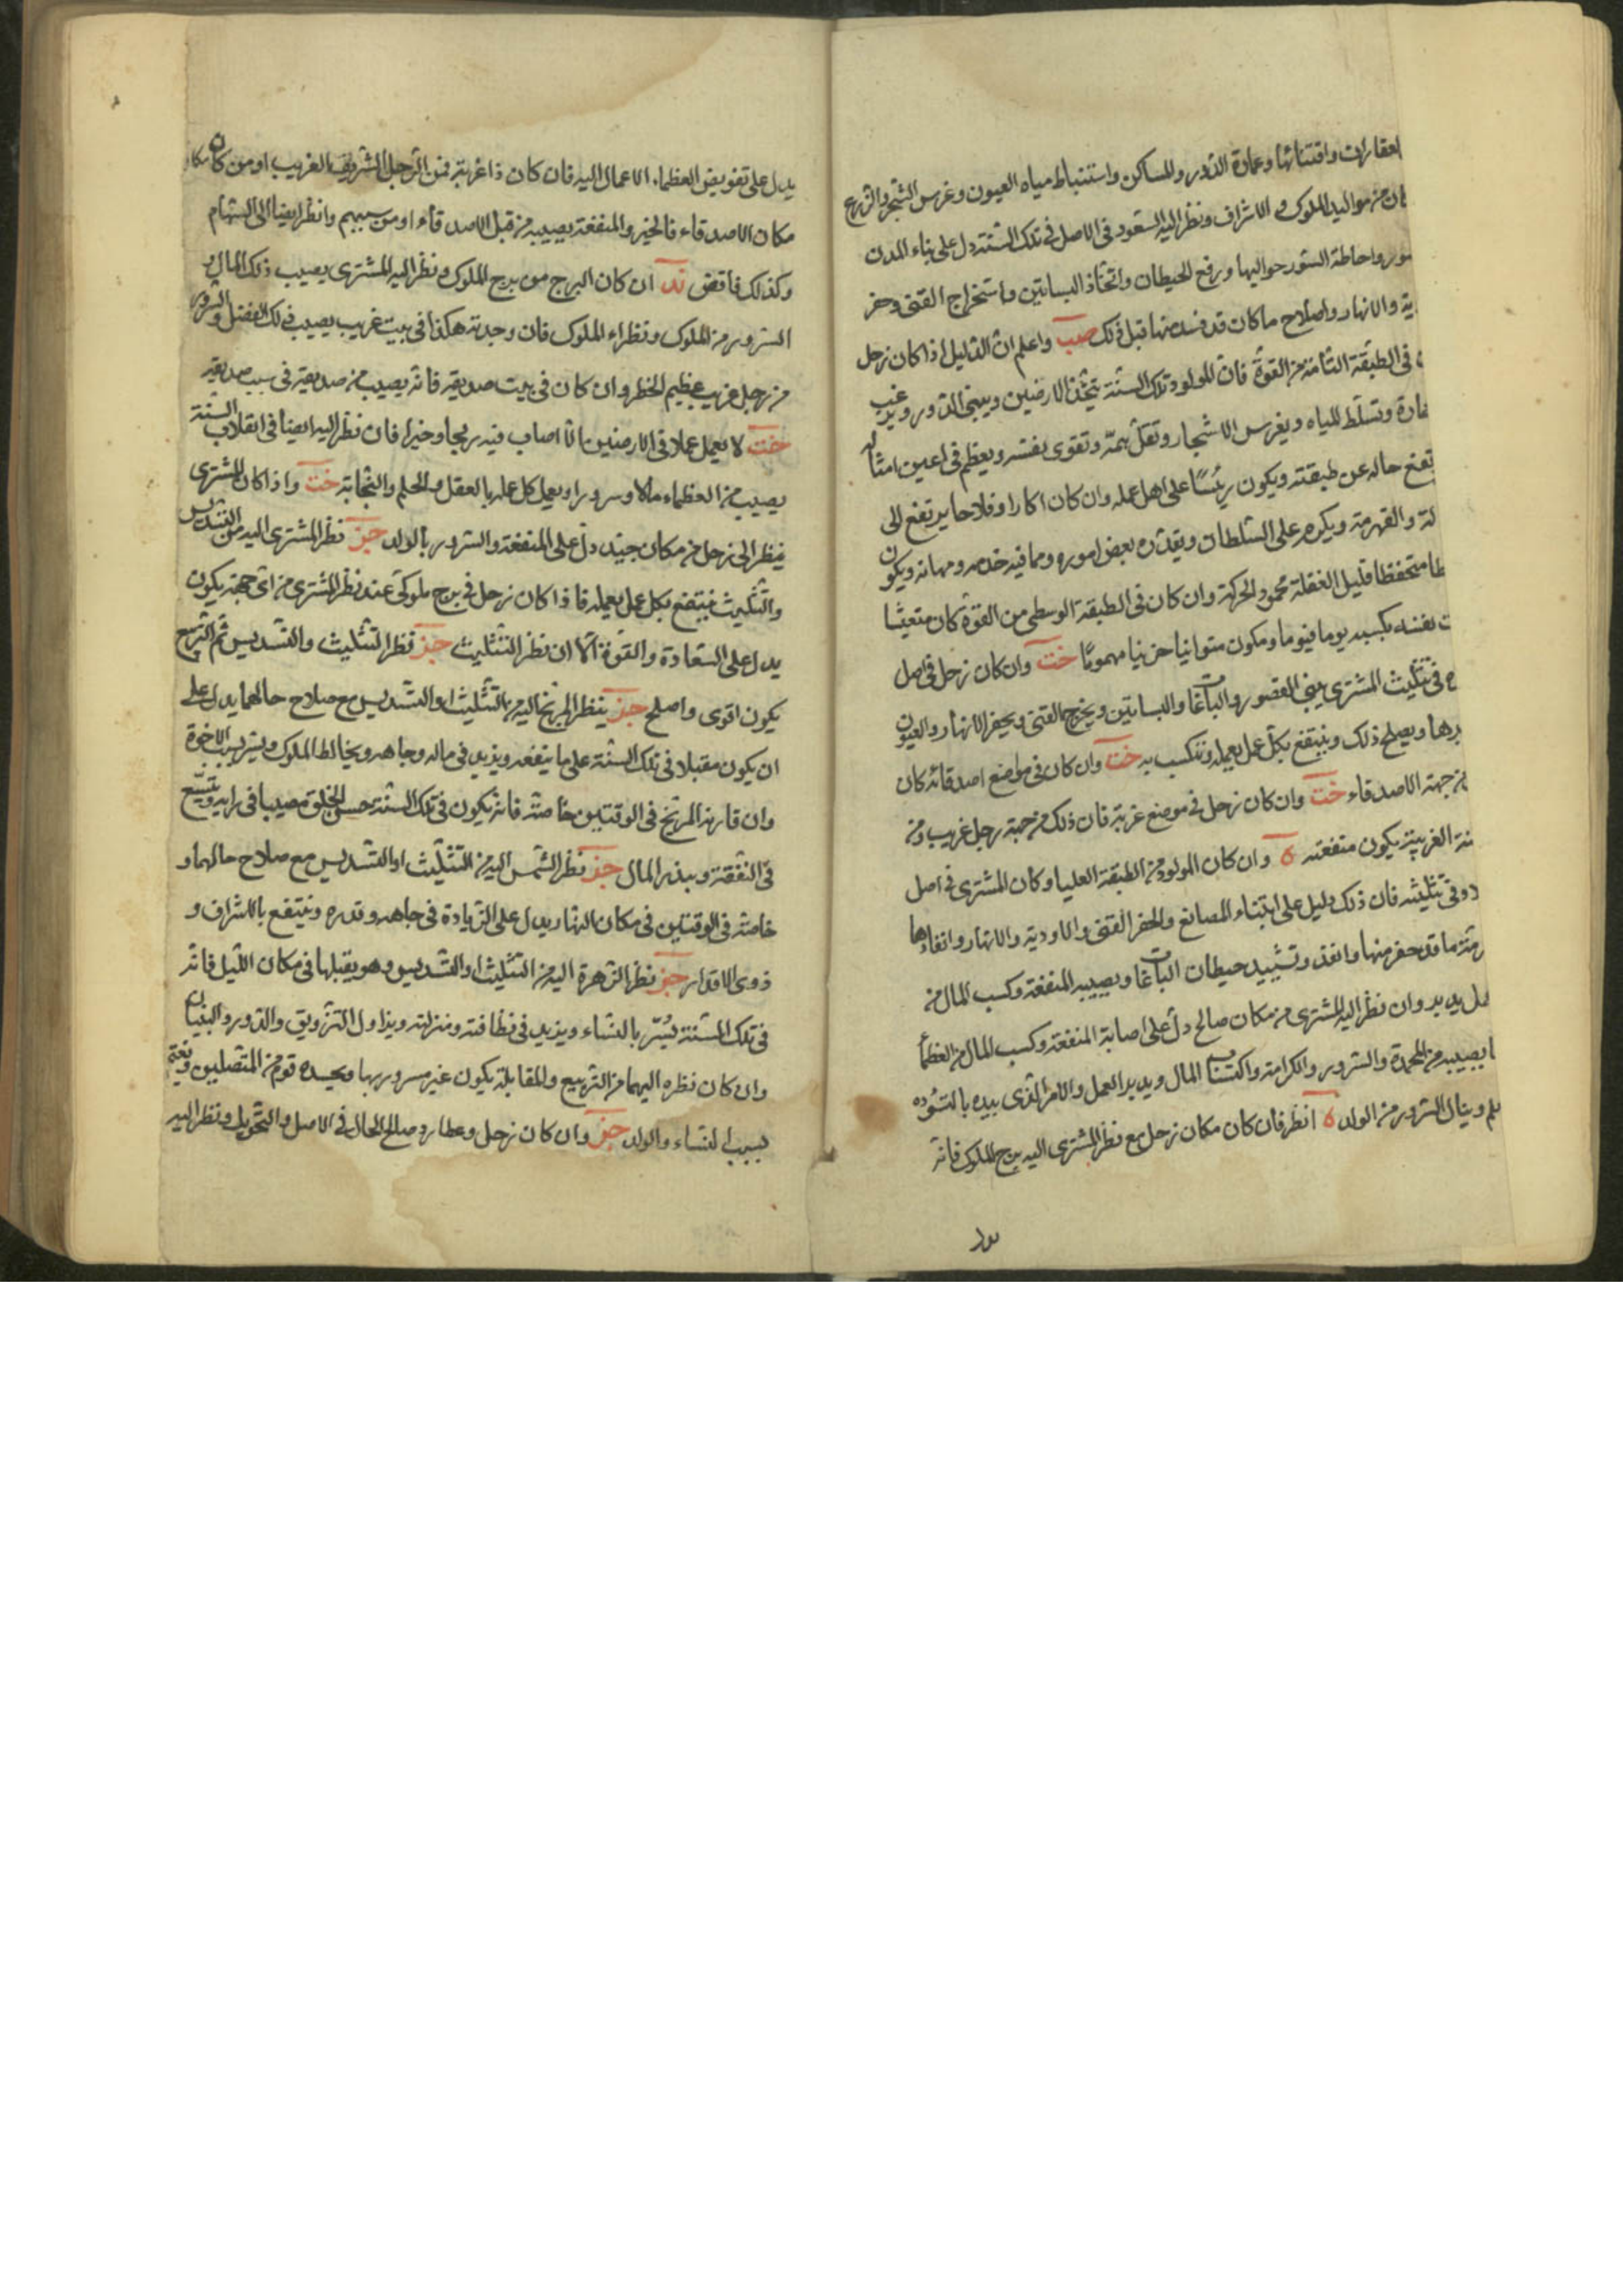 العقارات واقتنائها وعمارة الدور والمساكن واستنباط مياه العيون وغرس الشجر والزرع
كان من مواليد الملوك والاشراف ونظر اليه السعود في الاصل في تلك السنة دل على بناء المدن
سور واحاطة السور حواليها ورفع الحيطان واتخاذ البساتين واستخراج القنى وحفر
ية والانهار واصلاح ما كان قد فسد منها قبل ذلك صب واعلم ان الدليل اذا كان زحل
في الطبقة التامة من القوة فان المولود تلك السنة يتخذ الارضين ويبنى الدور ويرغب
مارة وتسلط المياه ويغرس الاشجار وتعل همته وتقوى نفسه ويعظم في اعين امثاله
تفع حاله عن طبقته ويكون رئيسًا على اهل عمله وان كان اكارا وفلاحا يرتفع الى
لة والقهرمة ويكرم على السلطان ويقلده بعض اموره ومما فيه خدمه ومهانه ويكون
طا متحفظا قليل الغفلة محمود الحركة وان كان في الطبقة الوسطى من القوة كان متعيشا
ت نفسه بكسبه يوما فيوما ومكون متوانيا حزينا مهمومًا خت وان كان زحل في اصل
ه في تثليث المشترى يبنى القصور والباغات والبساتين ويخرج القنى ويحفر الانهار والعيون
برها ويصلح ذلك وينتفع بكل عمل يعمله وتكسب به خت وان كان في مواضع اصدقائه كان
من جهة الاصدقاء خت وان كان زحل في موضع غربة فان ذلك من جهة رجل غريب ومن
نة الغريبة يكون منفعته ة وان كان المولود من الطبقة العليا وكان المشترى في اصل
د وفى تثليثه فان ذلك دليل على ابتناء المصانع والحفر القنى والاودية والانهار وانفاذها
رمة ما قد حفر منها وانفذ وتشييد حيطان الباغات ويصيبه المنفعة وكسب المال من
مل يديه وان نظر اليه المشترى من مكان صالح دل على اصابة المنفعة وكسب المال من العظماء
ا يصيبه من المحمدة والسرور والكرامة واكتساب المال ويدبر العمل والامر الذى بيده بالتؤده
لم وينال السرور من الولد ة انظر فان كان مكان زحل مع نظر المشترى اليه برج الملوك فانه
يدل
يدل على تفويض العظماء الاعمال اليه فان كان ذا غربة فمن الرجل الشريف الغريب او من كان مكا
مكان الاصدقاء فالخير والمنفعة يصيبه من قبل الاصدقاء او من سببهم وانظر ايضا الى السهام
وكذلك فاقض تد ان كان البرج من برج الملوك ونظر اليه المشترى يصيب ذلك المال و
السرور من الملوك ونظراء الملوك فان وجدته هكذا في بيت غريب يصيب ذلك الفضل والسرور
من رجل غريب عظيم الخطر وان كان في بيت صديقه فانه يصيب من صديقه في سبب صديقه
خت لا يعمل عملا في الارضين الا اصاب فيه ربحا وخيرا فان نظر اليه ايضا في انقلاب السنة
يصيب من العظماء مالا وسرورا ويعمل كل عمله بالعقل والحلم والنجابة خت واذا كان المشترى
ينظر الى زحل من مكان جيد دل على المنفعة والسرور بالولد جز نظر المشترى اليه من التسديس
والتثليث ينتفع بكل عمل يعمله فاذا كان زحل في برج ملوكى عند نظر المشترى من اى جهة يكون
يدل على السعادة والقوة الا ان نظر التثليث جز نظر التثليث والتسديس ثم التربيع
يكون اقوى واصلح جز ينظر المريخ اليه من التثليث او التسديس مع صلاح حالهما يدل على
ان يكون مقبلا في تلك السنة على ما ينفعه ويزيد في ماله وجاهه ويخالط الملوك ويسر بسبب الاخوة
وان قارنه المريخ في الوقتين خاصة فانه يكون في تلك السنة حسن الخلق مصيبا في رايه ويتسع
في النفقة ويبذر المال جز نظر الشمس اليه من التثليث او التسديس مع صلاح حالهما و
خاصة في الوقتين في مكان النهار يدل على الزيادة في جاهه وقدره وينتفع بالاشراف و
ذوى الاقدار جز نظر الزهرة اليه من التثليث او التسديس وهو يقبلها في مكان الليل فانه
في تلك السنة يُسر بالنساء ويزيد في نظافته ومنزلته ويزاول التزويق والدور والبنيان
وان كان نظره اليهما من التربيع والمقابلة يكون غير مسرور بها ويحسده قوم من المتصلين ويغتم
بسبب النساء والولد جز وان كان زحل وعطارد صالح الحال في الاصل والتحويل ونظر اليه